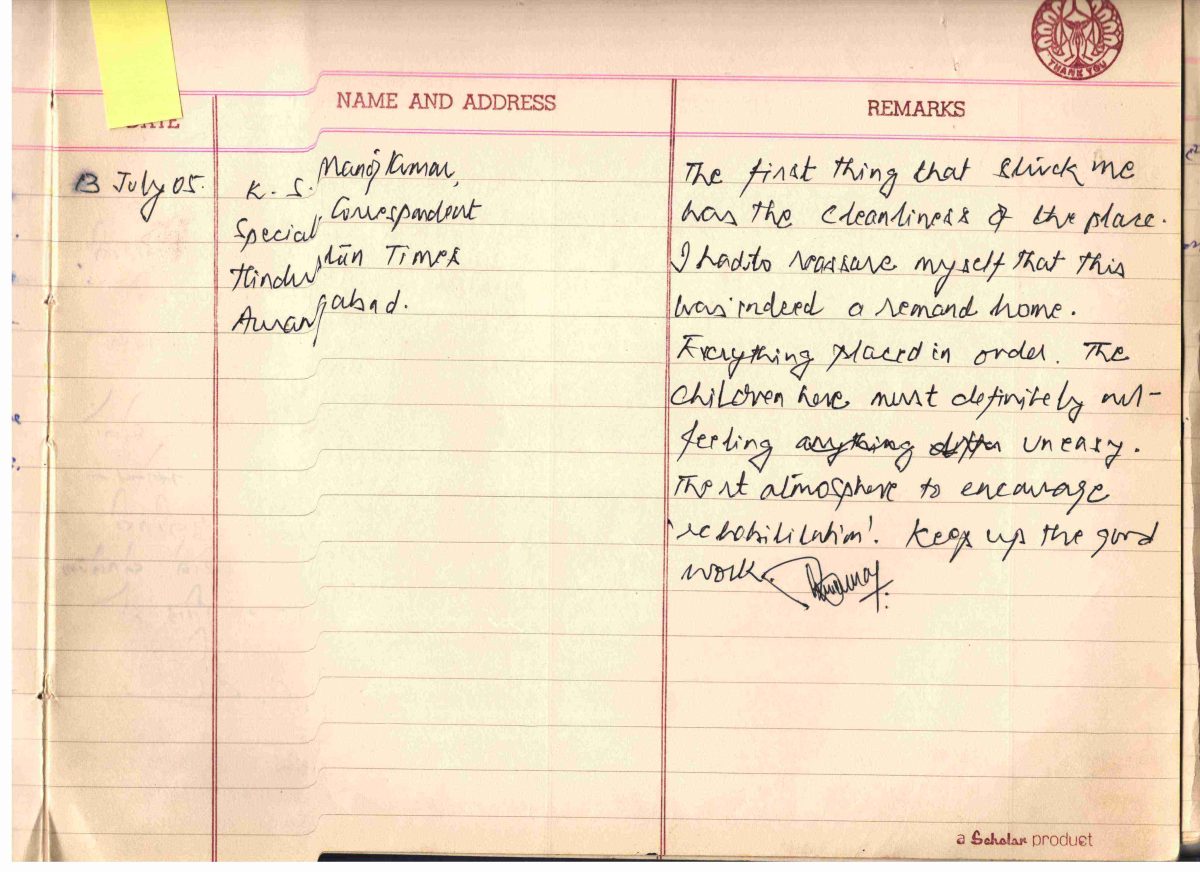 THANK YOU
DATE
NAME AND ADDRESS
REMARKS
13 July 05.
K. S. Manoj Kumar,
Special Correspondent
Hindustan Times
Aurangabad.
The first thing that struck me
was the cleanliness of the place.
I had to reassure myself that this
was indeed a remand home.
Everything placed in order. The
children here must definitely not
feeling anything uneasy.
atmosphere to encourage
'rehabilitation'. Keep up the good
work.
a Scholar product